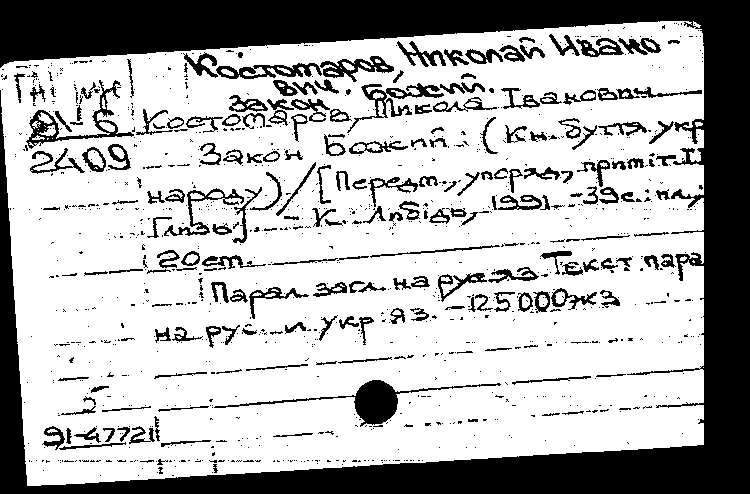 Костомаров, Николай Ивано-
вич.
Закон Божий.
91-6 Костомаров, Микола Іванович.
2409 Закон Божий: (Кн. буття укр
народу) / [Передм., упоряд., приміт. І
Глизь]. - К.: Либідь, 1991. -39с.: іл.;
20см.
Парал. загл. на рус. яз. Текст пара
на рус. и укр. яз. - 125000экз
5
91-47721